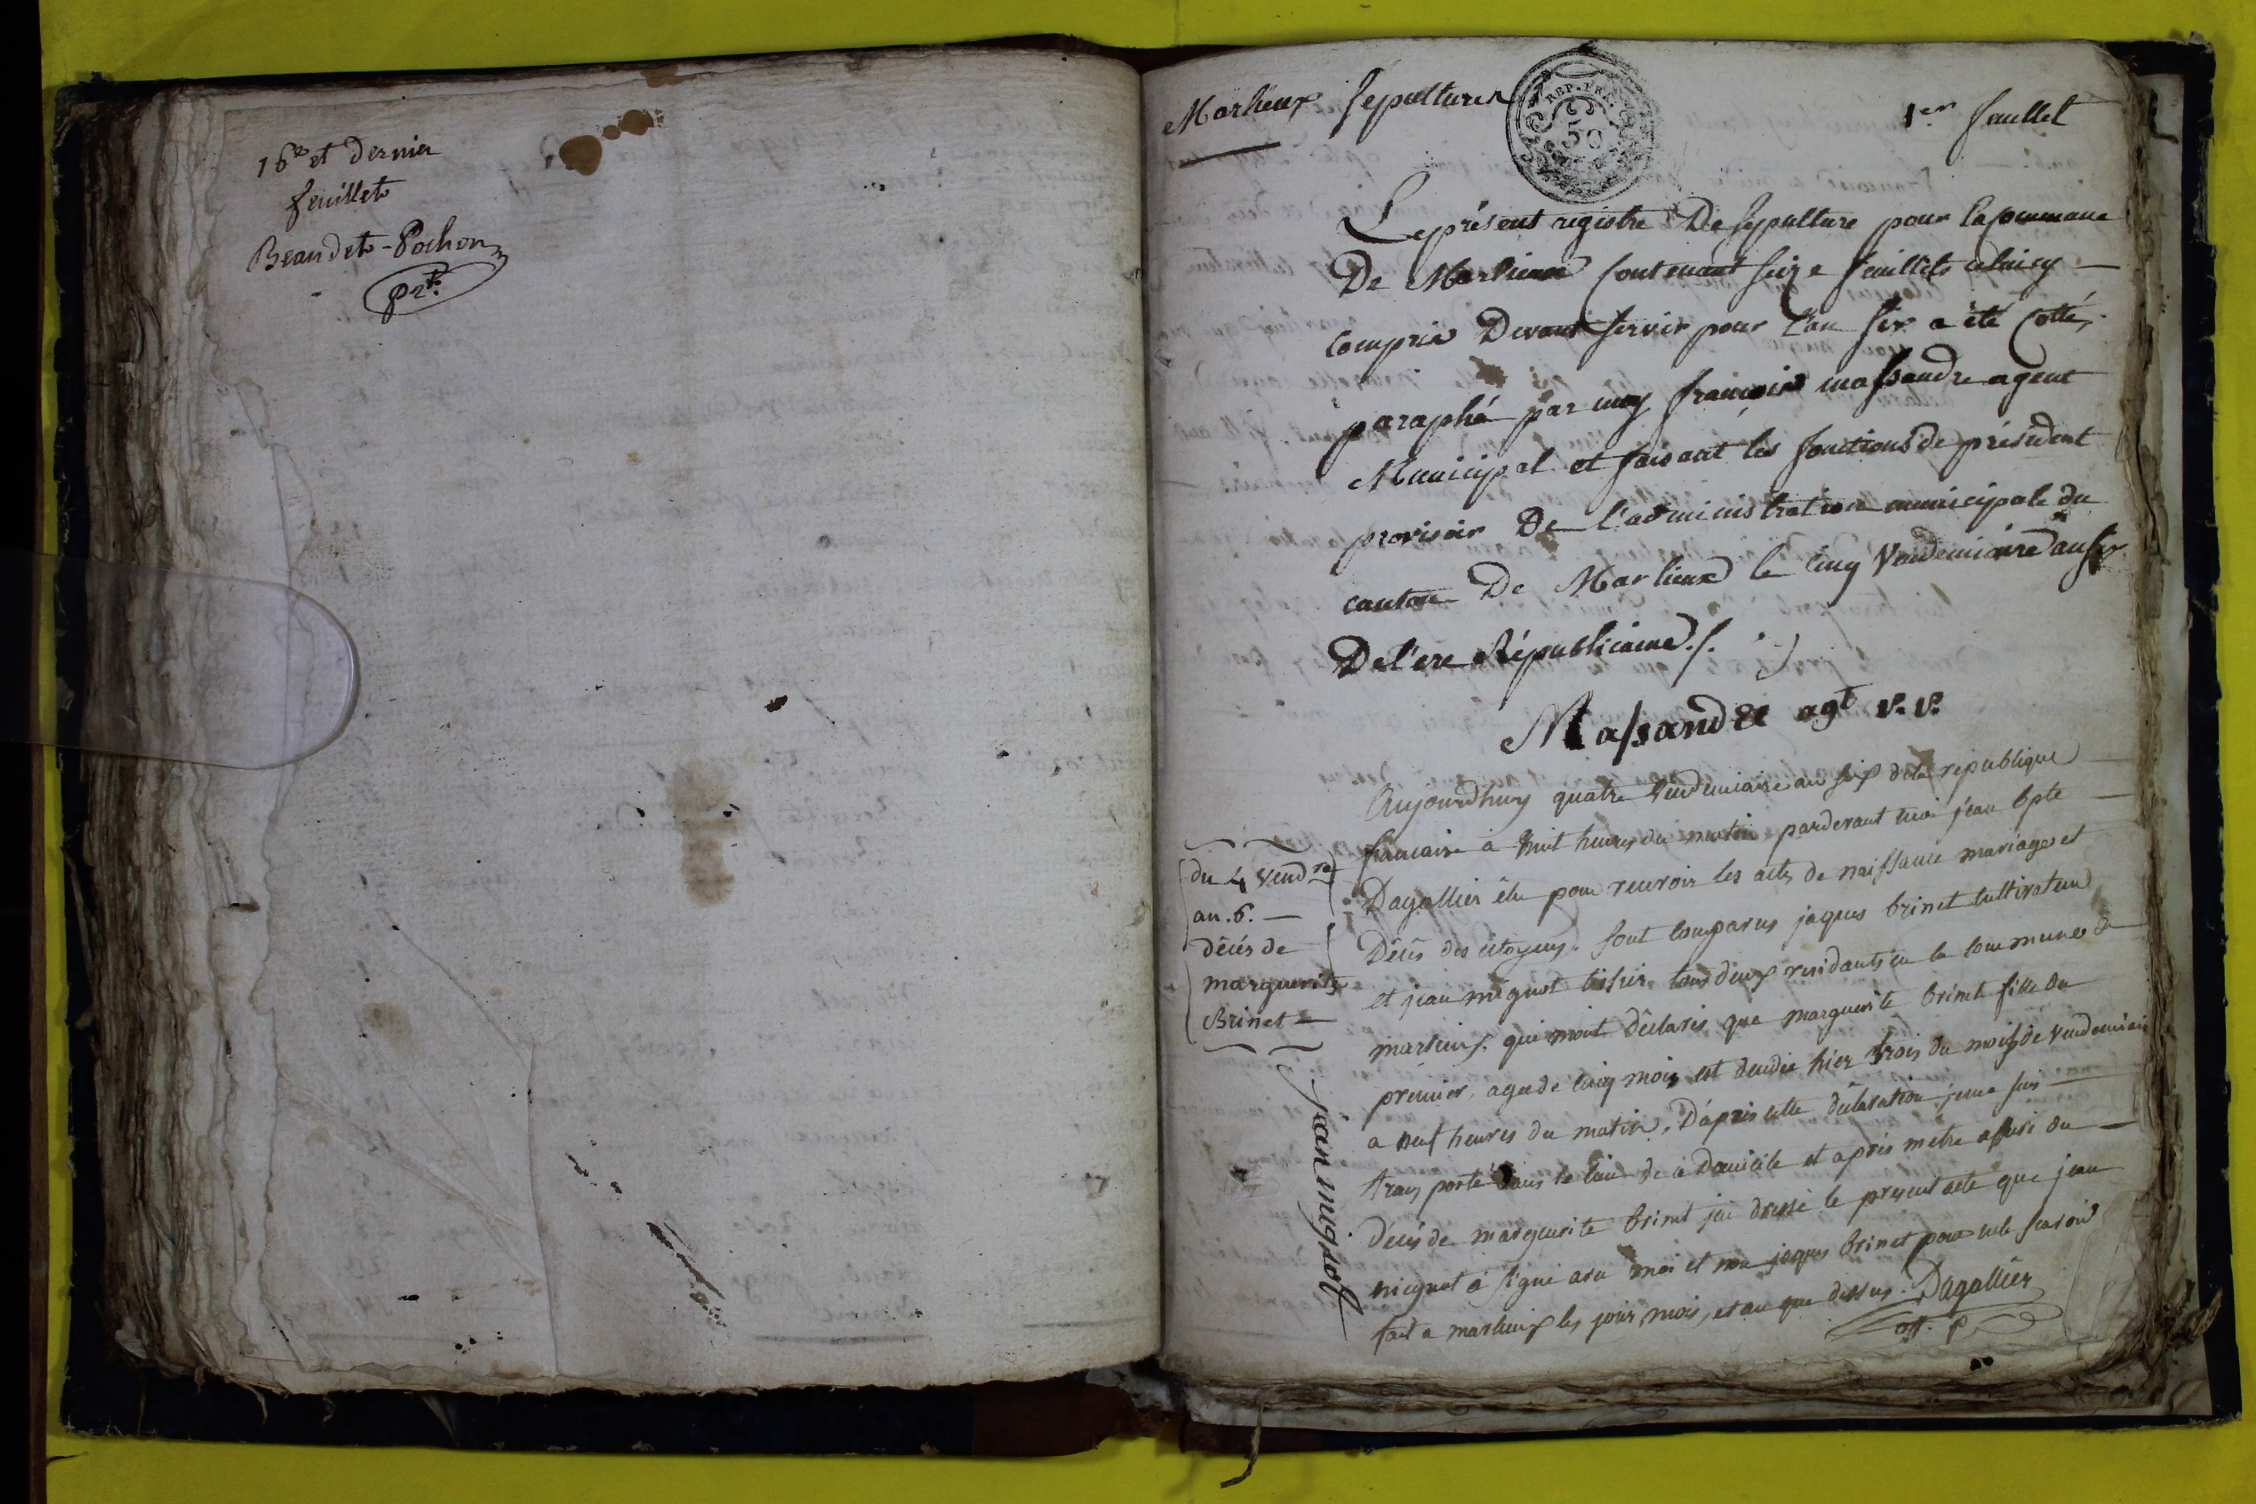 16e et dernier
feuillet
Beaudet-Pochon
prt.
Marlieux sépultures
REP. FRA.
50
1er feuillet
Le présent registre De sepulture pour la Commune
De Marlieux Contenant seize feuillets celuicy
compris Devant servir pour l'an six a été Cotté,
paraphé par moy françois massandre agent
Municipal et faisant les fonctions de président
provisoir De l'administration municipale du
canton De Marlieux le cinq Vendemiaire an six
De l'ere Républicaine ./.
Massandre agt
Aujourdhuy quatre Vendemiaire an six de la republique
francaise a huit heures du matin pardevant moi jean bpte
Dagallier élu pour recevoir les actes de naissance mariage et
Décès des citoyens. sont comparus jaques brinet cultivateur
et jean mignot tissier tous deux residants en la commune de
marlieux. qui mont déclaré que marguerite brinet fille du
premier, agée de cinq mois est decedée hier trois du mois de Vendemiaire
a neuf heures du matin, D'apres cette déclaration je me suis
transporté dans le lieu de ce Domicile et après metre assuré du
Décès de marguerite brinet jai dressé le present acte que jean
mignot a signé avec moi et non jaques brinet pour ne le savoir
fait a marlieux les jour, mois, et an que dessus. Dagallier
off. p
du 4 Vendre
an. 6.
décés de
marguerite
Brinet
jean mignot